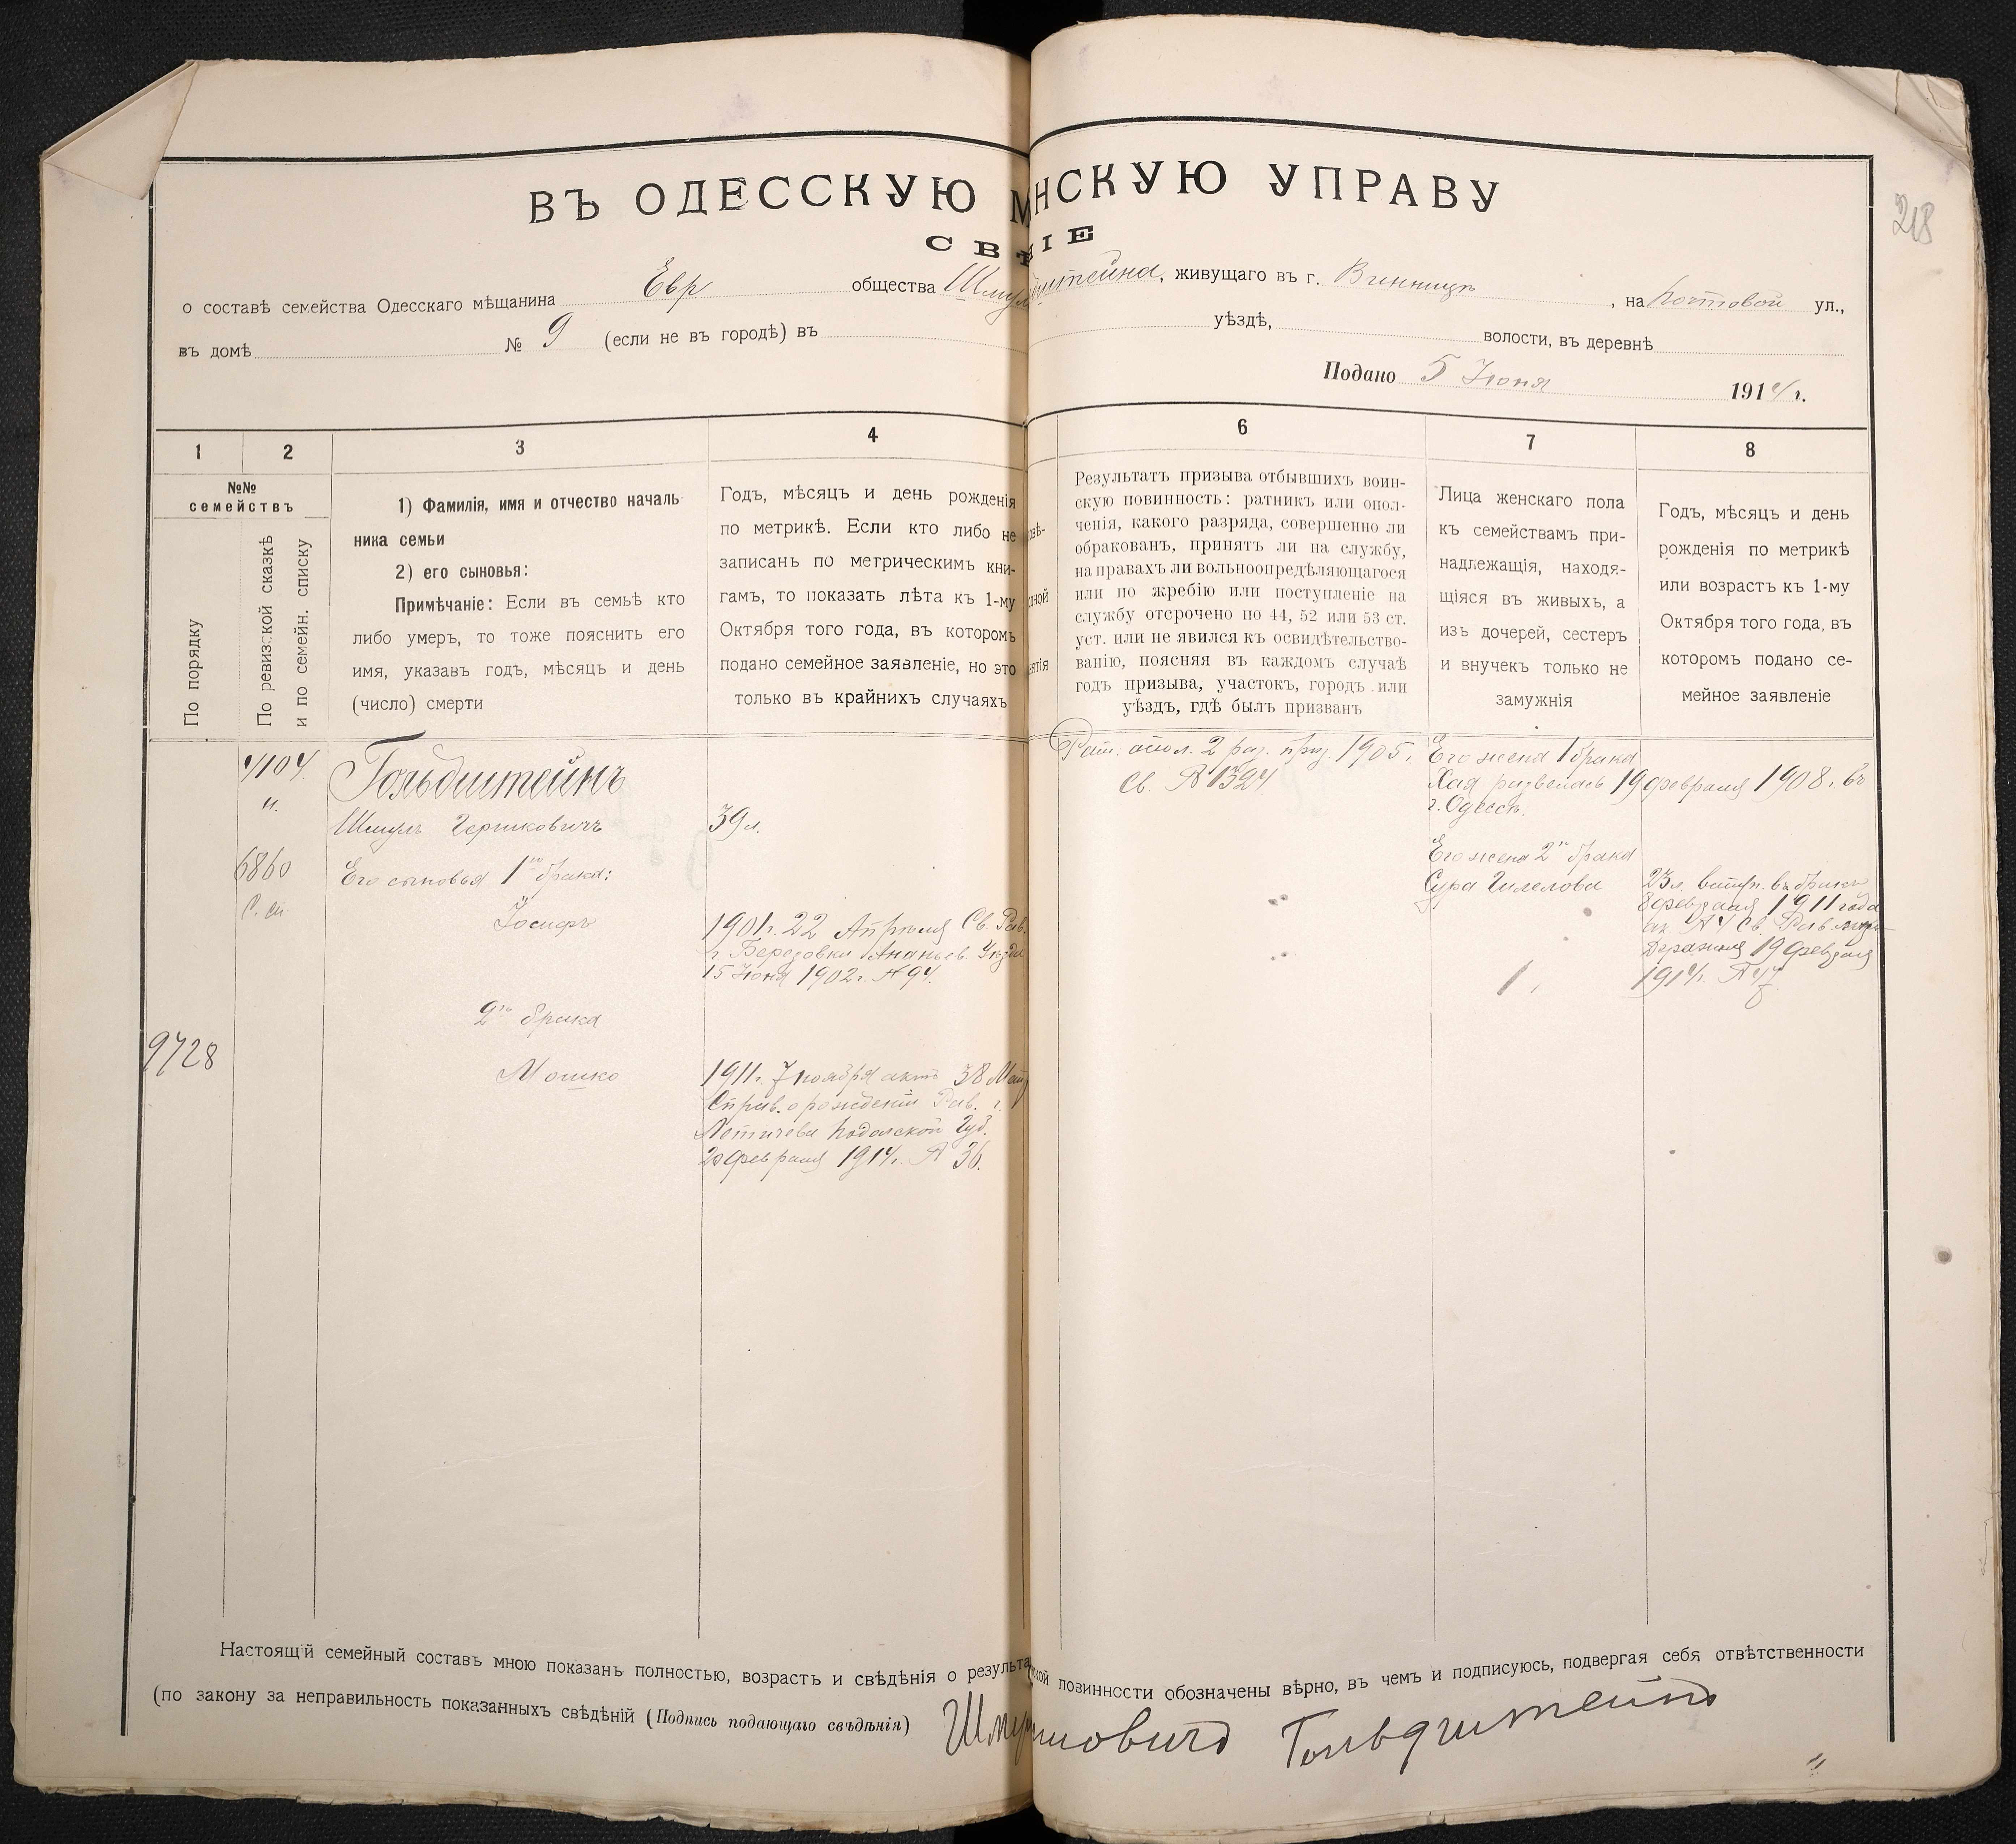 218
ВЪ ОДЕССКУЮ М НСКУЮ УПРАВУ
СВ НІЕ
о составѣ семейства Одесскаго мѣщанина Евр общества Шмул дштейна, живущаго въ г. Винницѣ, на Почтовой ул.,
въ домѣ № 9 (если не въ городѣ) въ уѣздѣ, волости, въ деревнѣ
Подано 5 Іюня 1914 г.
1 2 3 4 6 7 8
№№
семействъ
По порядку
По ревизской сказкѣ
и по семейн. списку
1) Фамилія, имя и отчество началь
ника семьи
2) его сыновья:
Примѣчаніе: Если въ семьѣ кто
либо умеръ, то тоже пояснить его
имя, указавъ годъ, мѣсяцъ и день
(число) смерти
Годъ, мѣсяцъ и день рожденія
по метрикѣ. Если кто либо не
записанъ по метрическимъ кни-
гамъ, то показать лѣта къ 1-му
Октября того года, въ которомъ
подано семейное заявленіе, но это
только въ крайнихъ случаяхъ
овѣ-
дной
нятія
Результатъ призыва отбывшихъ воин-
скую повинность: ратникъ или опол-
ченія, какого разряда, совершенно ли
обракованъ, принятъ ли на службу,
на правахъ ли вольноопредѣляющагося
или по жребію или поступленіе на
службу отсрочено по 44, 52 или 53 ст.
уст. или не явился къ освидѣтельство-
ванію, поясняя въ каждомъ случаѣ
годъ призыва, участокъ, городъ или
уѣздъ, гдѣ былъ призванъ
Лица женскаго пола
къ семействамъ при-
надлежащія, находя-
щіяся въ живыхъ, а
изъ дочерей, сестеръ
и внучекъ только не
замужнія
Годъ, мѣсяцъ и день
рожденія по метрикѣ
или возрастъ къ 1-му
Октября того года, въ
которомъ подано се-
мейное заявленіе
9728
4104
н.
6860
Гольдштейнъ
Шмулъ Гершковичъ
39 л.
Его сыновья 1го брака:
Іосифъ
1901 г. 22 Апрѣля Св. Рав.
г. Березовки Ананьев. Уѣзда
15 Іюня 1902 г. № 94.
2го брака
Мошко
1911 г. 7 ноября актъ 38
Справ. о рожденіи Рав. г.
Летичева Подольской Губ.
20 февраля 1914 г. № 36.
Рат. опол. 2 раз. приз. 1905 г.
Св. № 1324
Его жена 1 брака
Хая развелась 19 февраля 1908 г. въ
г. Одессѣ.
Его жена 2го брака
Сура Гилелова
23 л. вступ. въ бракъ
8 февраля 1911 года
Св. Рав.
19 февраля
1914 г. № 47
1
Настоящій семейный составъ мною показанъ полностью, возрастъ и свѣдѣнія о результа ской повинности обозначены вѣрно, въ чемъ и подписуюсь, подвергая себя отвѣтственности
(по закону за неправильность показанныхъ свѣдѣній (Подпись подающаго свѣдѣнія) Шму шковичъ Гольдштейнъ